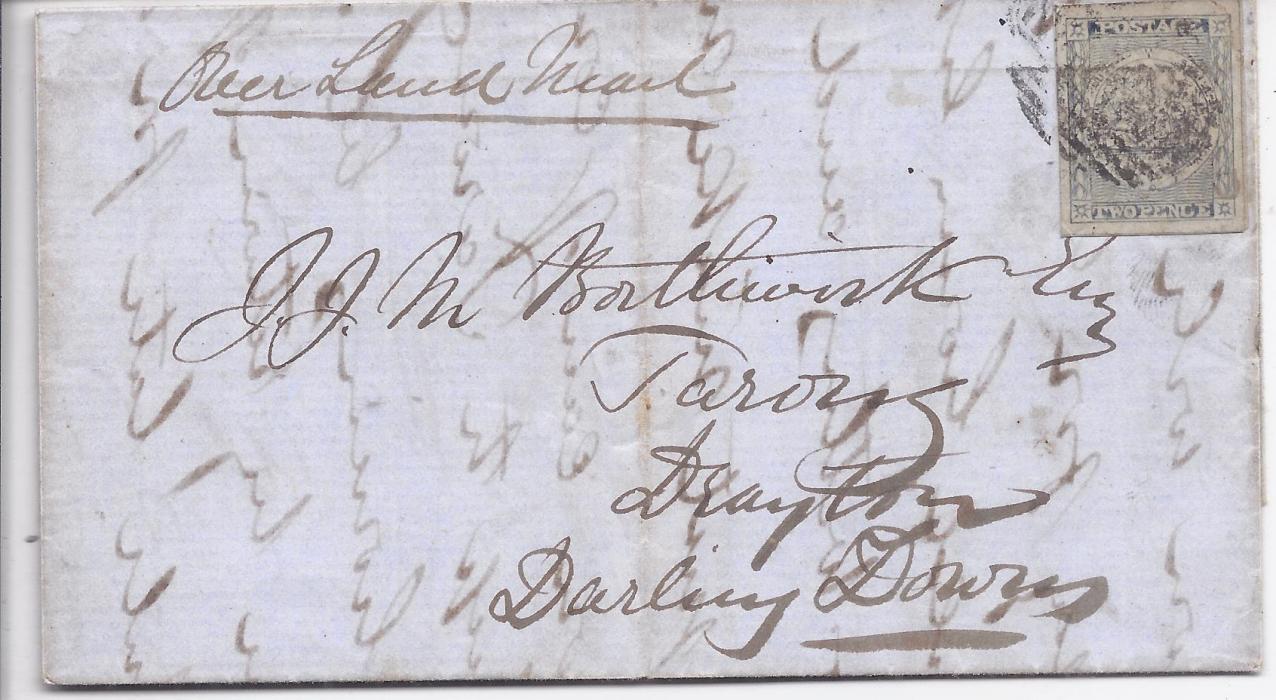 Over Land Mail
POSTAGE
TWO PENCE
J. J. M Borthwick Esq
Tarong
Drayton
Darling Downs